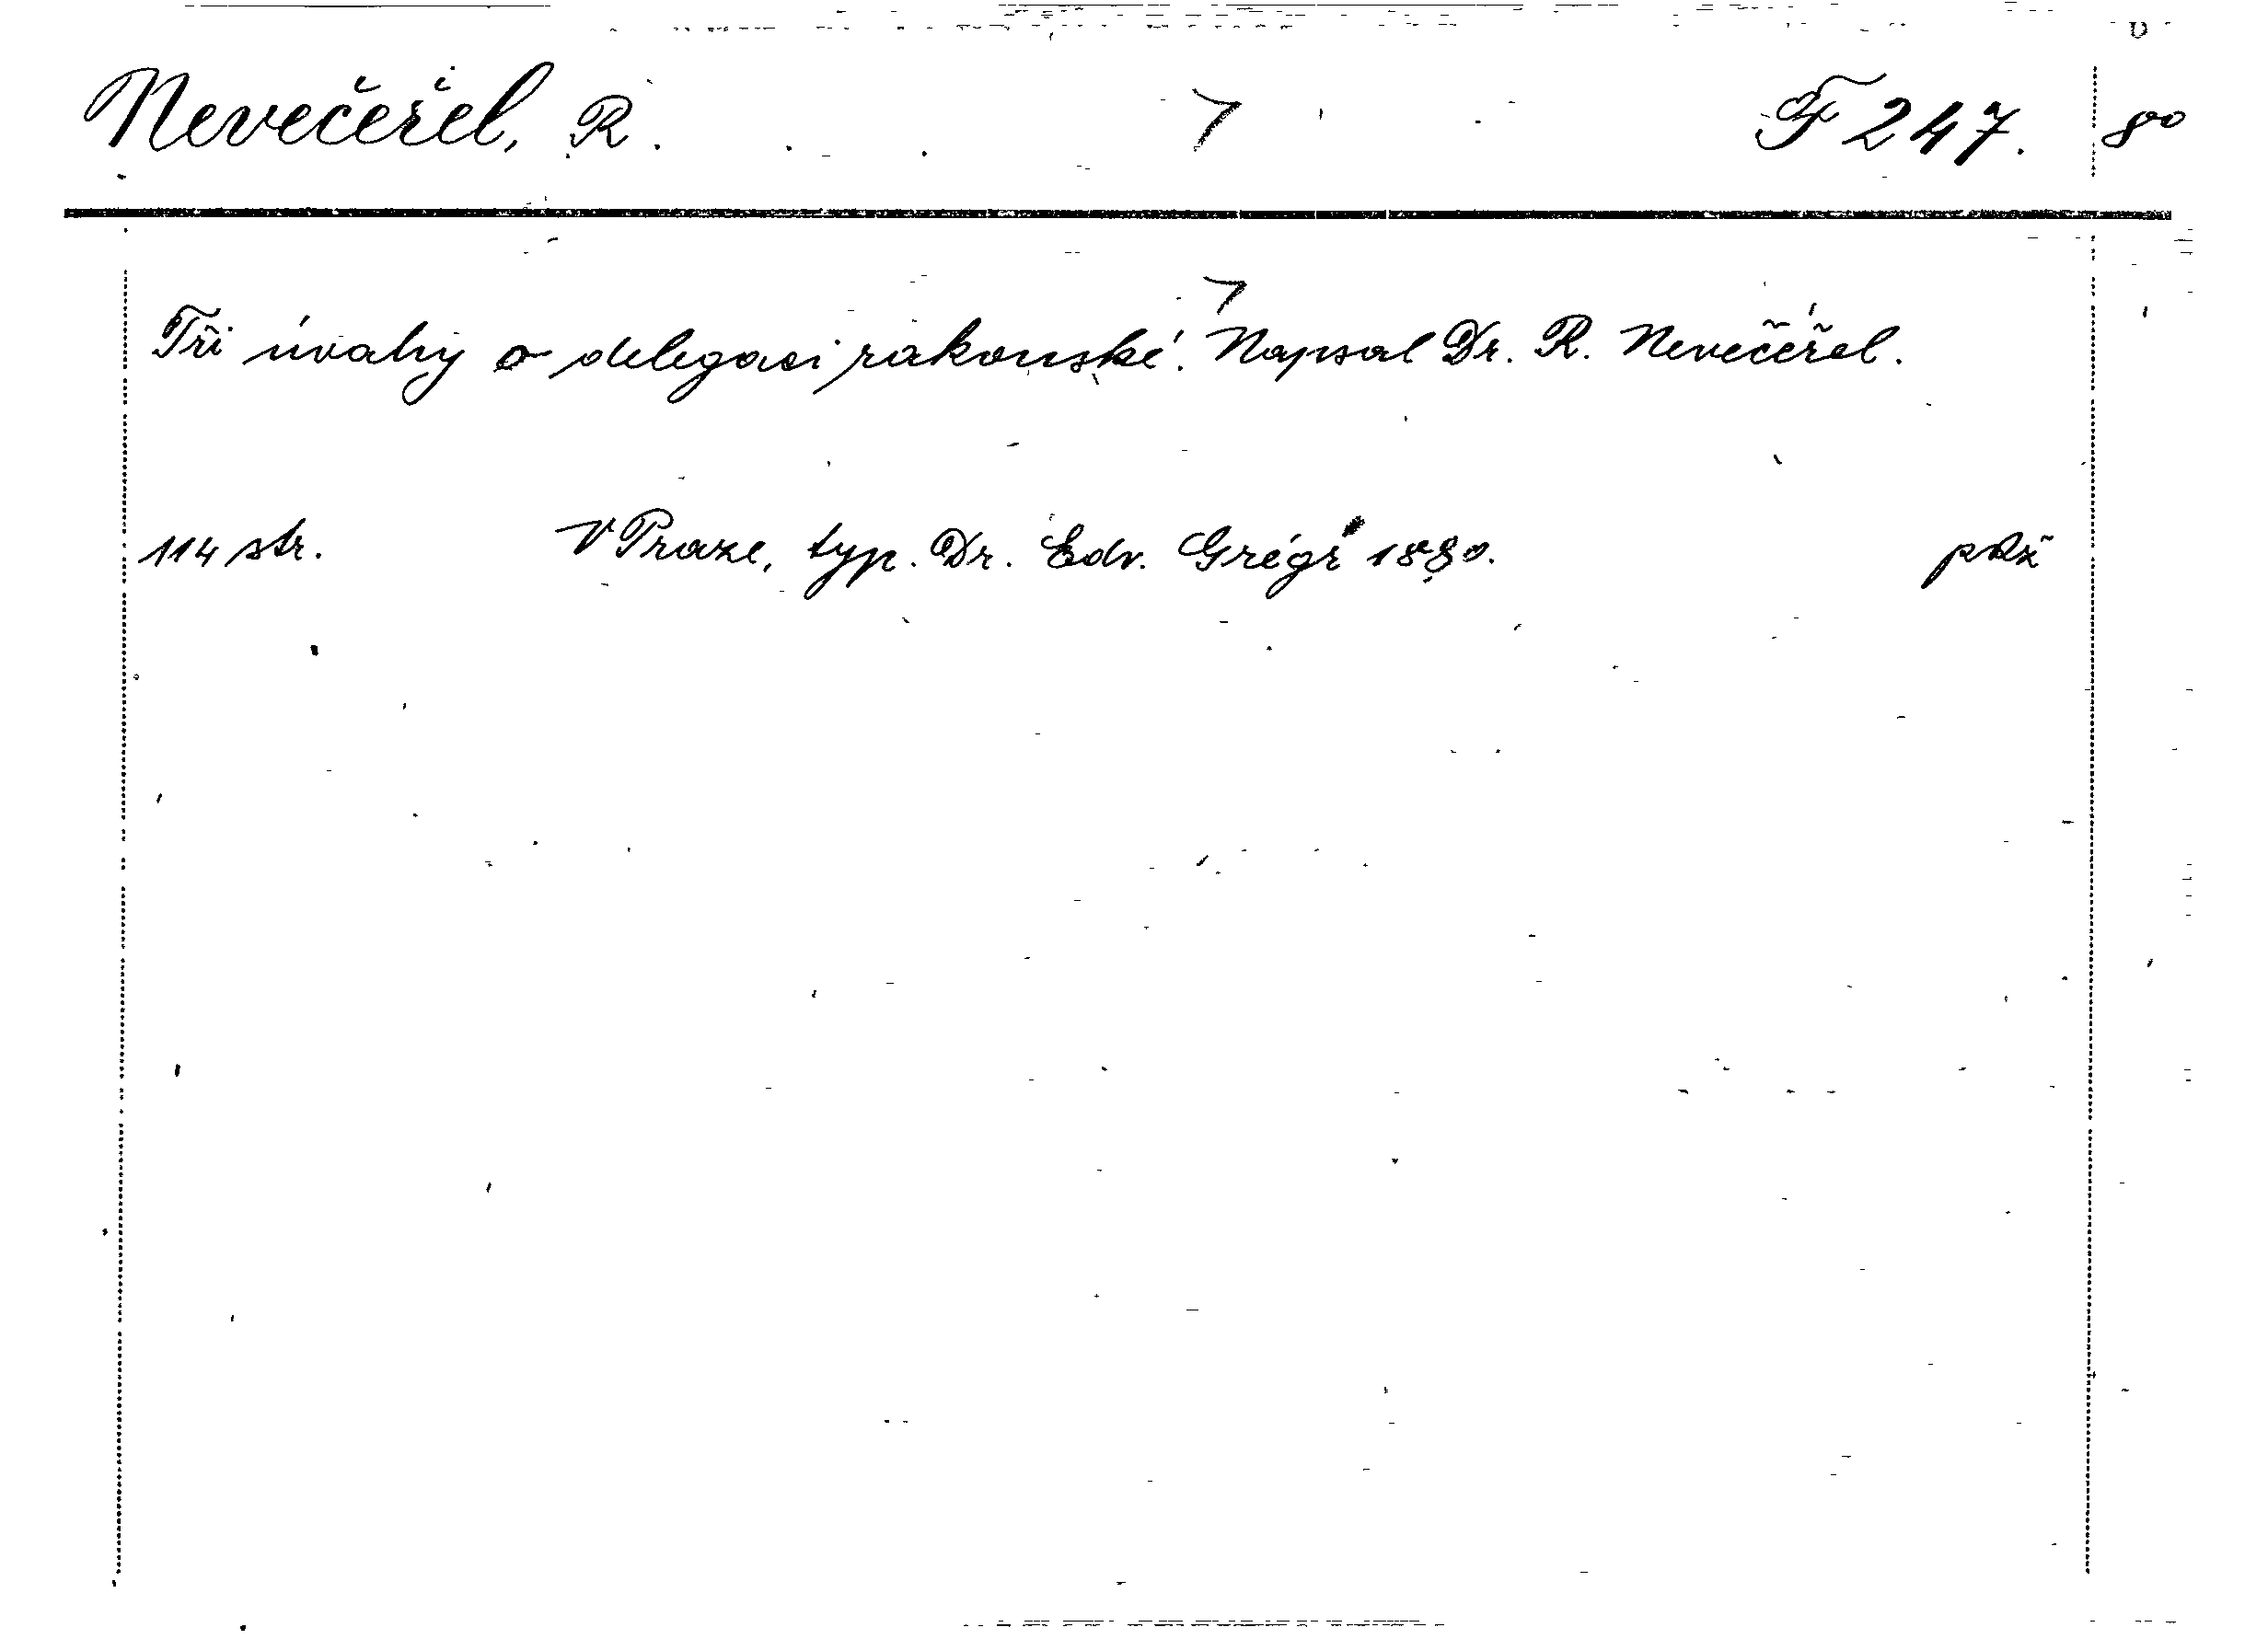 Nevečeřel, R. F 247. 8°
Tři úvahy o delegaci rakouské. Napsal Dr. R. Nevečeřel.
114 str. V Praze, typ. Dr. Edv. Grégr 1880.